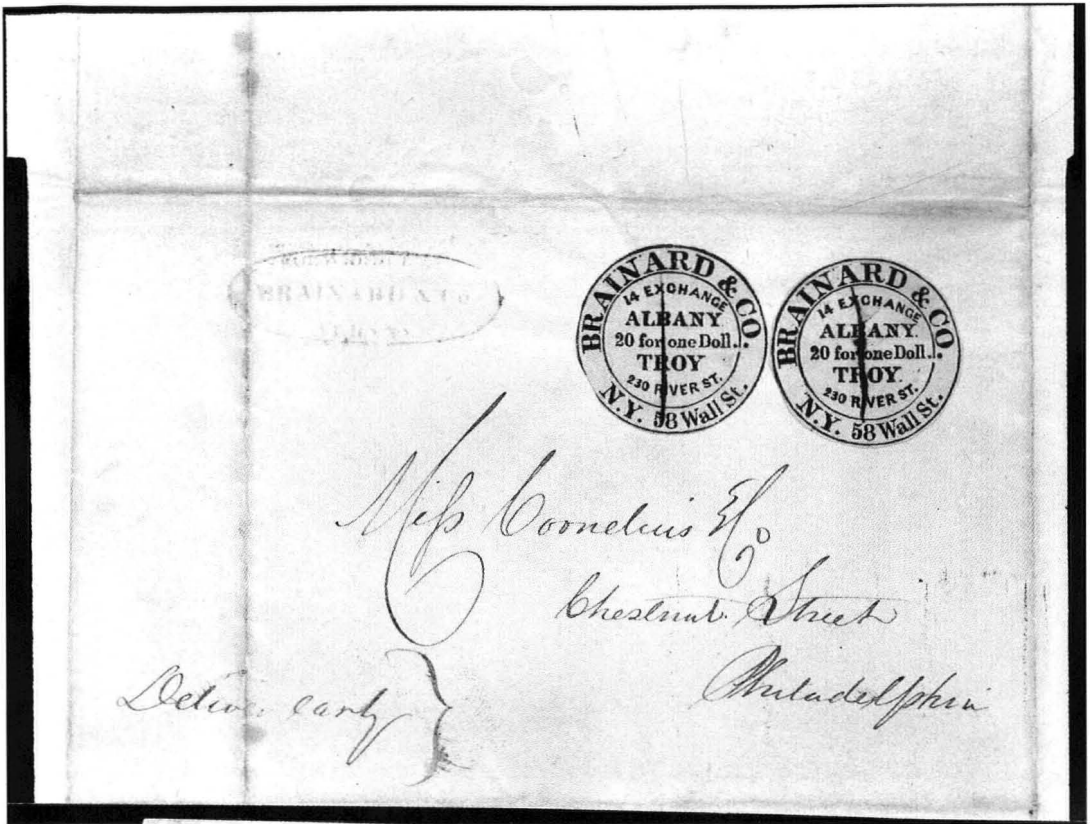 BRAINARD & CO.
BRAINARD & CO.
14 EXCHANGE
ALBANY
20 for one Doll.
TROY
230 RIVER ST.
N.Y. 58 Wall St.
BRAINARD & CO.
14 EXCHANGE
ALBANY.
20 for one Doll.
TROY.
230 RIVER ST.
N.Y. 58 Wall St.
Cornelius & Co
Chestnut Street
Philadelphia
Deliver early